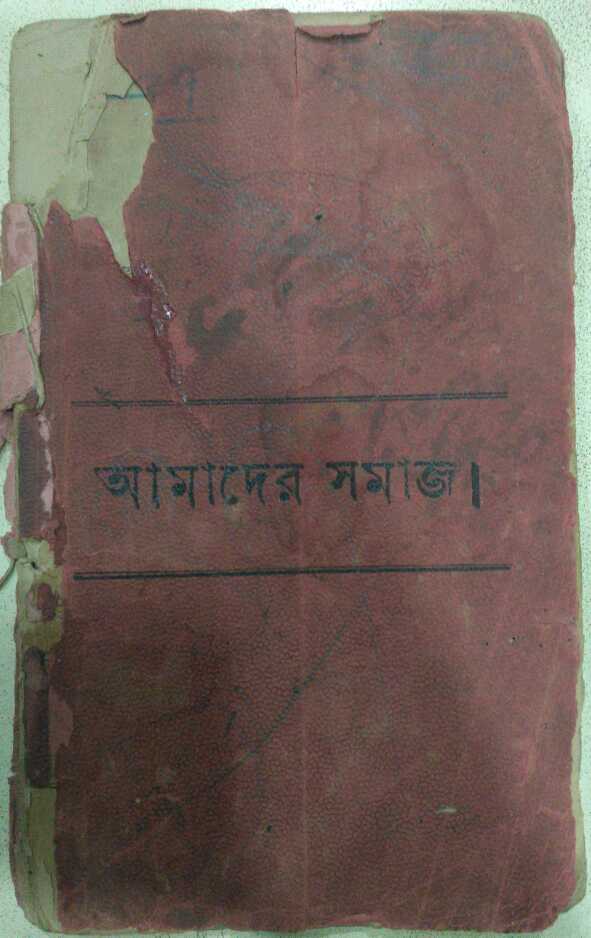 আমাদের সমাজ।